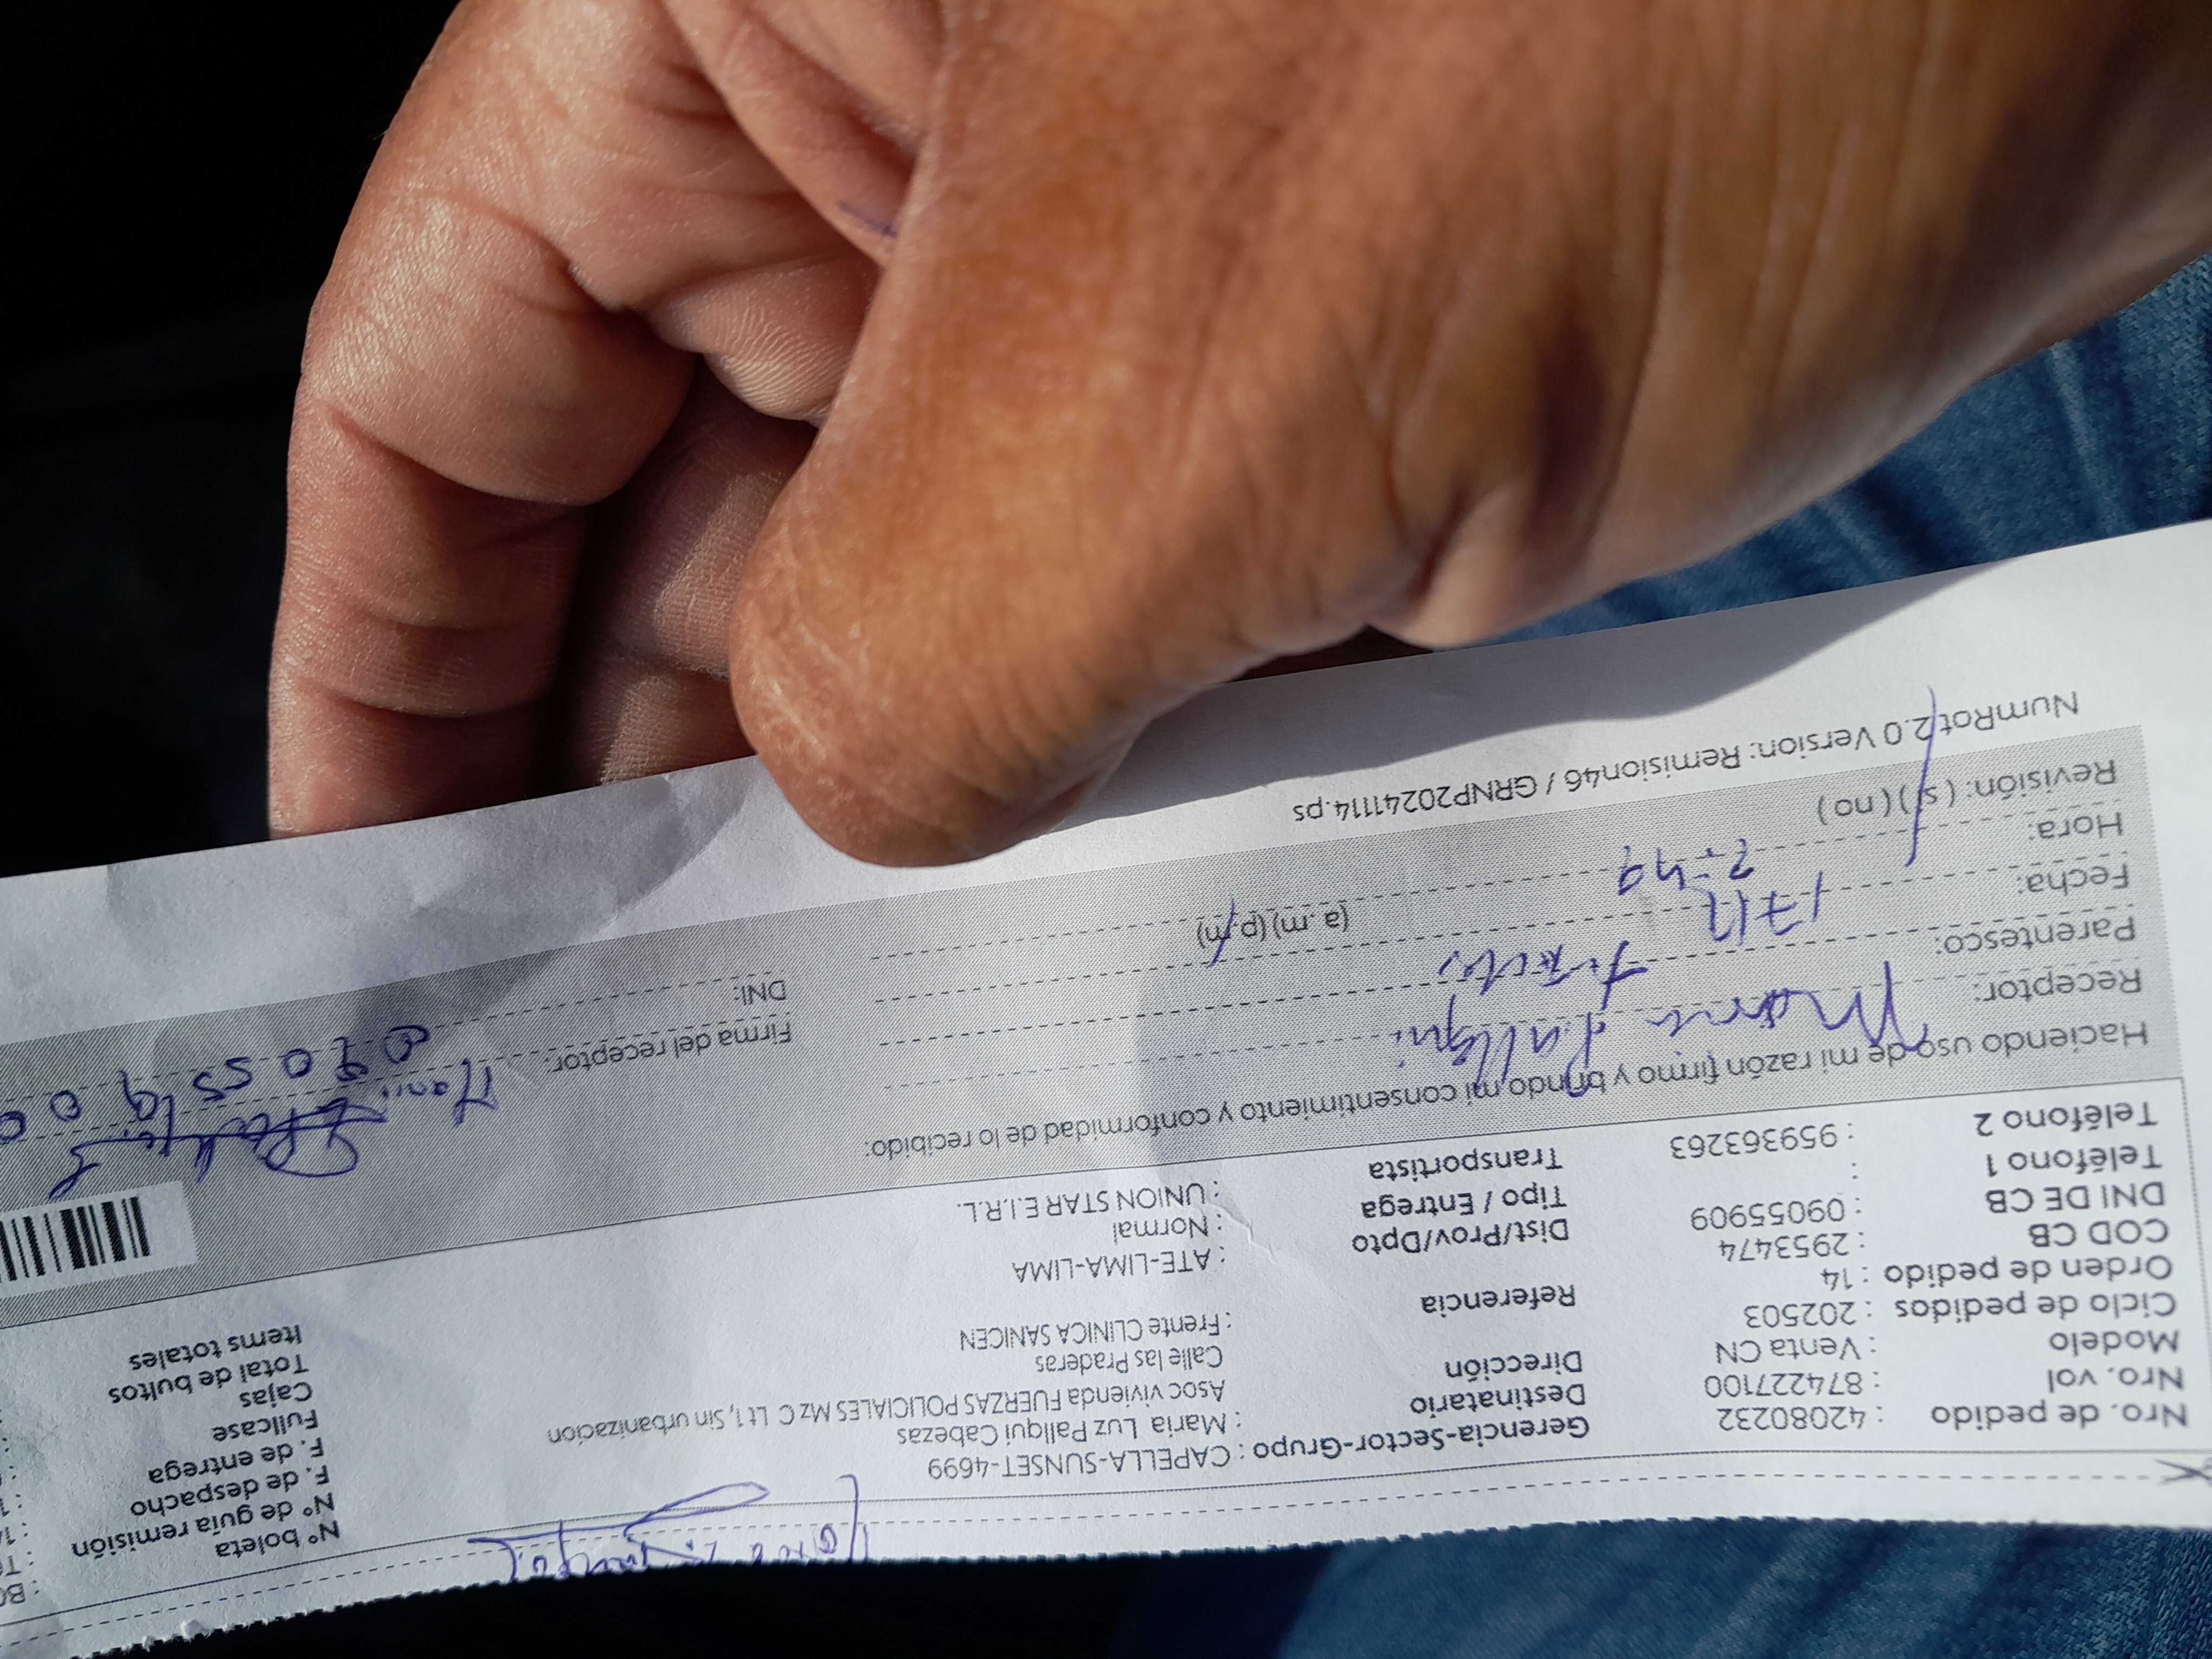 Nro. de pedido : 42080232
Nro. vol : 874227100
Modelo : Venta CN
Ciclo de pedidos : 202503
Orden de pedido : 14
COD CB : 2953474
DNI DE CB : 09055909
Teléfono 1 :
Teléfono 2 : 959363263
Gerencia-Sector-Grupo : CAPELLA-SUNSET-4699
Destinatario : Maria Luz Pallqui Cabezas
Dirección Asoc vivienda FUERZAS POLICIALES Mz C Lt 1, Sin urbanizacion
Calle las Praderas
Referencia : Frente CLINICA SANICEN
Dist/Prov/Dpto : ATE-LIMA-LIMA
Tipo / Entrega : Normal
Transportista : UNION STAR E.I.R.L.
N° boleta
N° de guía remisión
F. de despacho
F. de entrega
Fullcase
Cajas
Total de bultos
Items totales
Haciendo uso de mi razón firmo y brindo mi consentimiento y conformidad de lo recibido:
Receptor: Maria Pallqui
Parentesco:
Fecha: 17/2
Hora: (a.m) (p.m)
Revisión: (si) (no)
Firma del receptor:
DNI:
NumRot 2.0 Version: Remision46 / GRNP20241114.ps